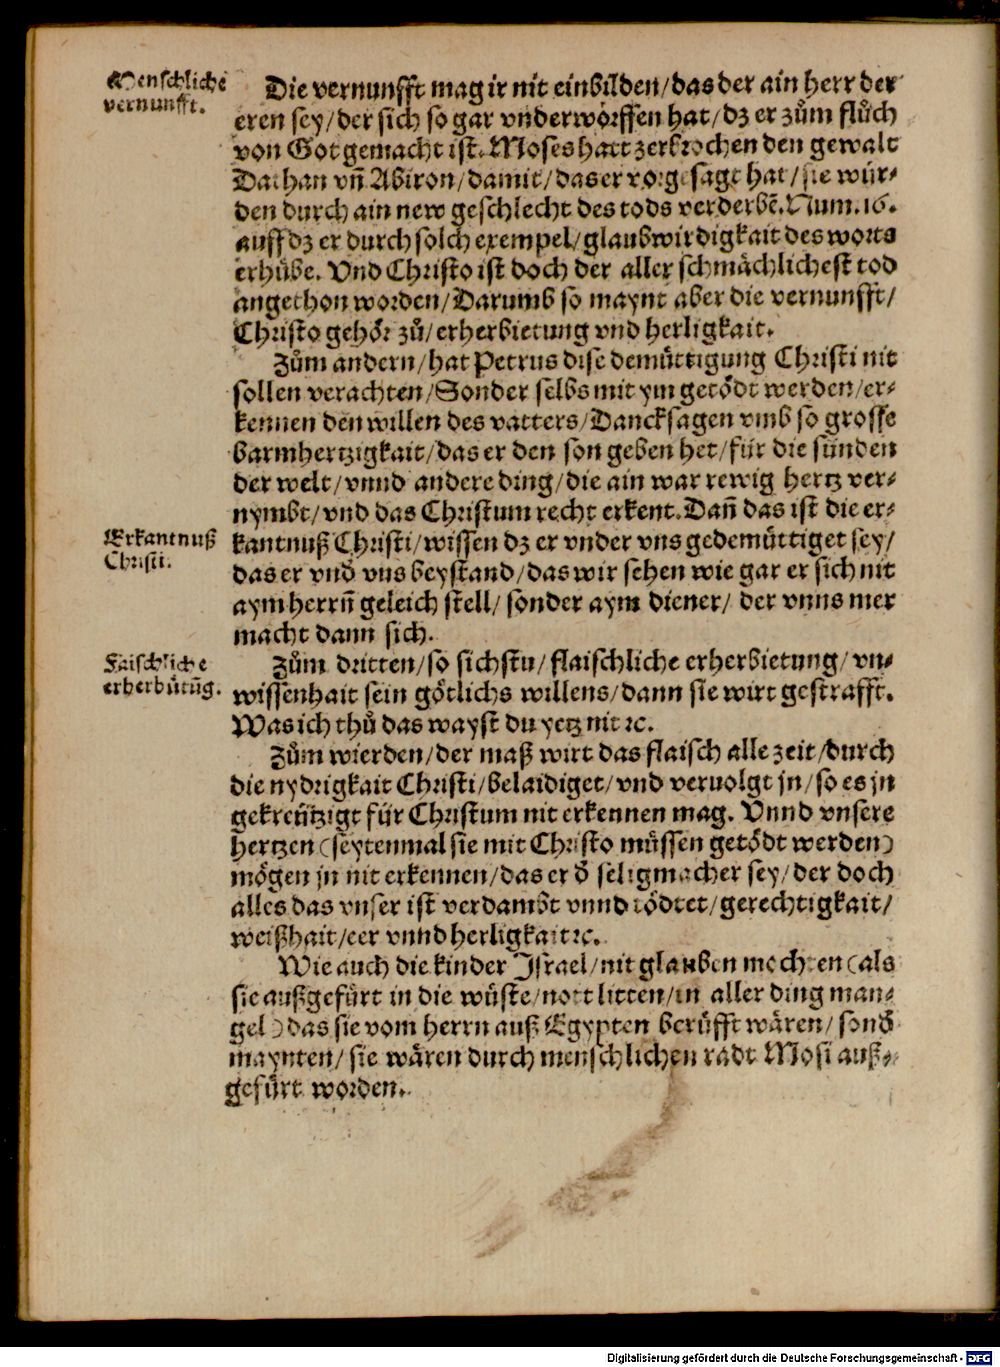 Menschliche
vernunfft.
Die vernunfft mag ir nit einbilden/das der ain herr der
eren sey/der sich so gar vnderworffen hat/dz er zům flůch
von Got gemacht ist. Moses hatt zerbrochen den gewalt
Dathan vñ Abiron/damit/das er vorgesagt hat/sie wür-
den durch ain new geschlecht des tods verderbẽ. Num. 16.
auff dz er durch solch exempel/glaubwirdigkait des worts
erhůbe. Vnd Christo ist doch der aller schmächlichest tod
angethon worden/Darumb so maynt aber die vernunfft/
Christo gehör zů/erherbietung vnd herligkait.
Zům andern/hat Petrus dise demüttigung Christi nit
sollen verachten/Sonder selbs mit ym getödt werden/er-
kennen den willen des vatters/Dancksagen vmb so grosse
barmhertzigkait/das er den son geben het/für die sünden
der welt/vnnd andere ding/die ain war rewig hertz ver-
nymbt/vnd das Christum recht erkent. Dañ das ist die er-
Erkantnuß
Christi.
kantnuß Christi/wissen dz er vnder vns gedemüttiget sey/
das er vnď vns beystand/das wir sehen wie gar er sich nit
aym herrñ geleich stell/ sonder aym diener/ der vnns mer
macht dann sich.
Flaischliche
erherbütũg.
Zům dritten/so sichstu/flaischliche erherbietung/vn-
wissenhait sein götlichs willens/dann sie wirt gestrafft.
Was ich thů das wayst du yetz nit ⁊c.
Zům vierden/der maß wirt das flaisch alle zeit/durch
die nydrigkait Christi/belaidiget/vnd veruolgt jn/so es jn
gekreützigt für Christum nit erkennen mag. Vnnd vnsere
hertzen (seytenmal sie mit Christo müssen getödt werden)
mögen jn nit erkennen/das er ď seligmacher sey/der doch
alles das vnser ist verdambt vnnd tödtet/gerechtigkait/
weißhait/eer vnnd herligkait ⁊c.
Wie auch die kinder Israel/nit glauben mochten (als
sie außgefürt in die wüste/nott litten/in aller ding man-
gel) das sie vom herrn auß Egypten berüfft wären/ sonď
maynten/ sie wären durch menschlichen radt Mosi auß-
gefürt worden.
Digitalisierung gefördert durch die Deutsche Forschungsgemeinschaft - DFG